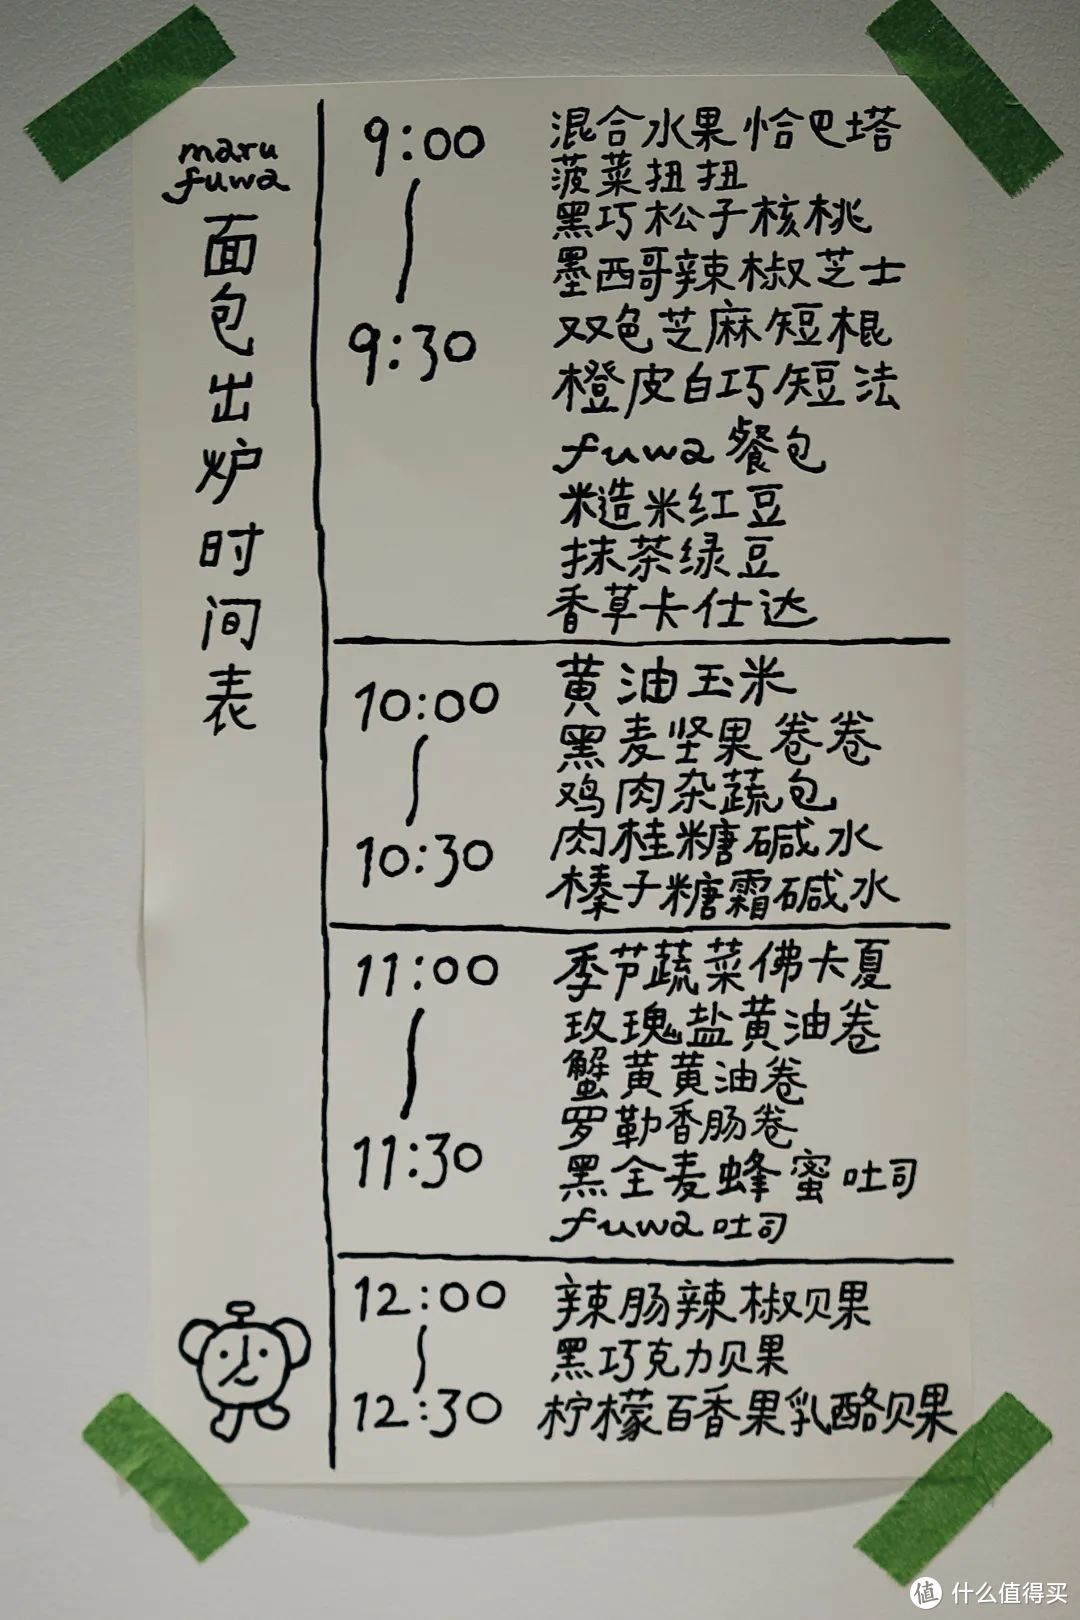 maru
fuwa
面包出炉时间表
9:00
9:30
混合水果恰巴塔
菠菜扭扭
黑巧松子核桃
墨西哥辣椒芝士
双色芝麻短棍
橙皮白巧短法
fuwa餐包
糙米红豆
抹茶绿豆
香草卡仕达
10:00
10:30
黄油玉米
黑麦坚果卷卷
鸡肉杂蔬包
肉桂糖碱水
榛子糖霜碱水
11:00
11:30
季节蔬菜佛卡夏
玫瑰盐黄油卷
蟹黄黄油卷
罗勒香肠卷
黑全麦蜂蜜吐司
fuwa吐司
12:00
12:30
辣肠辣椒贝果
黑巧克力贝果
柠檬百香果乳酪贝果
值 什么值得买